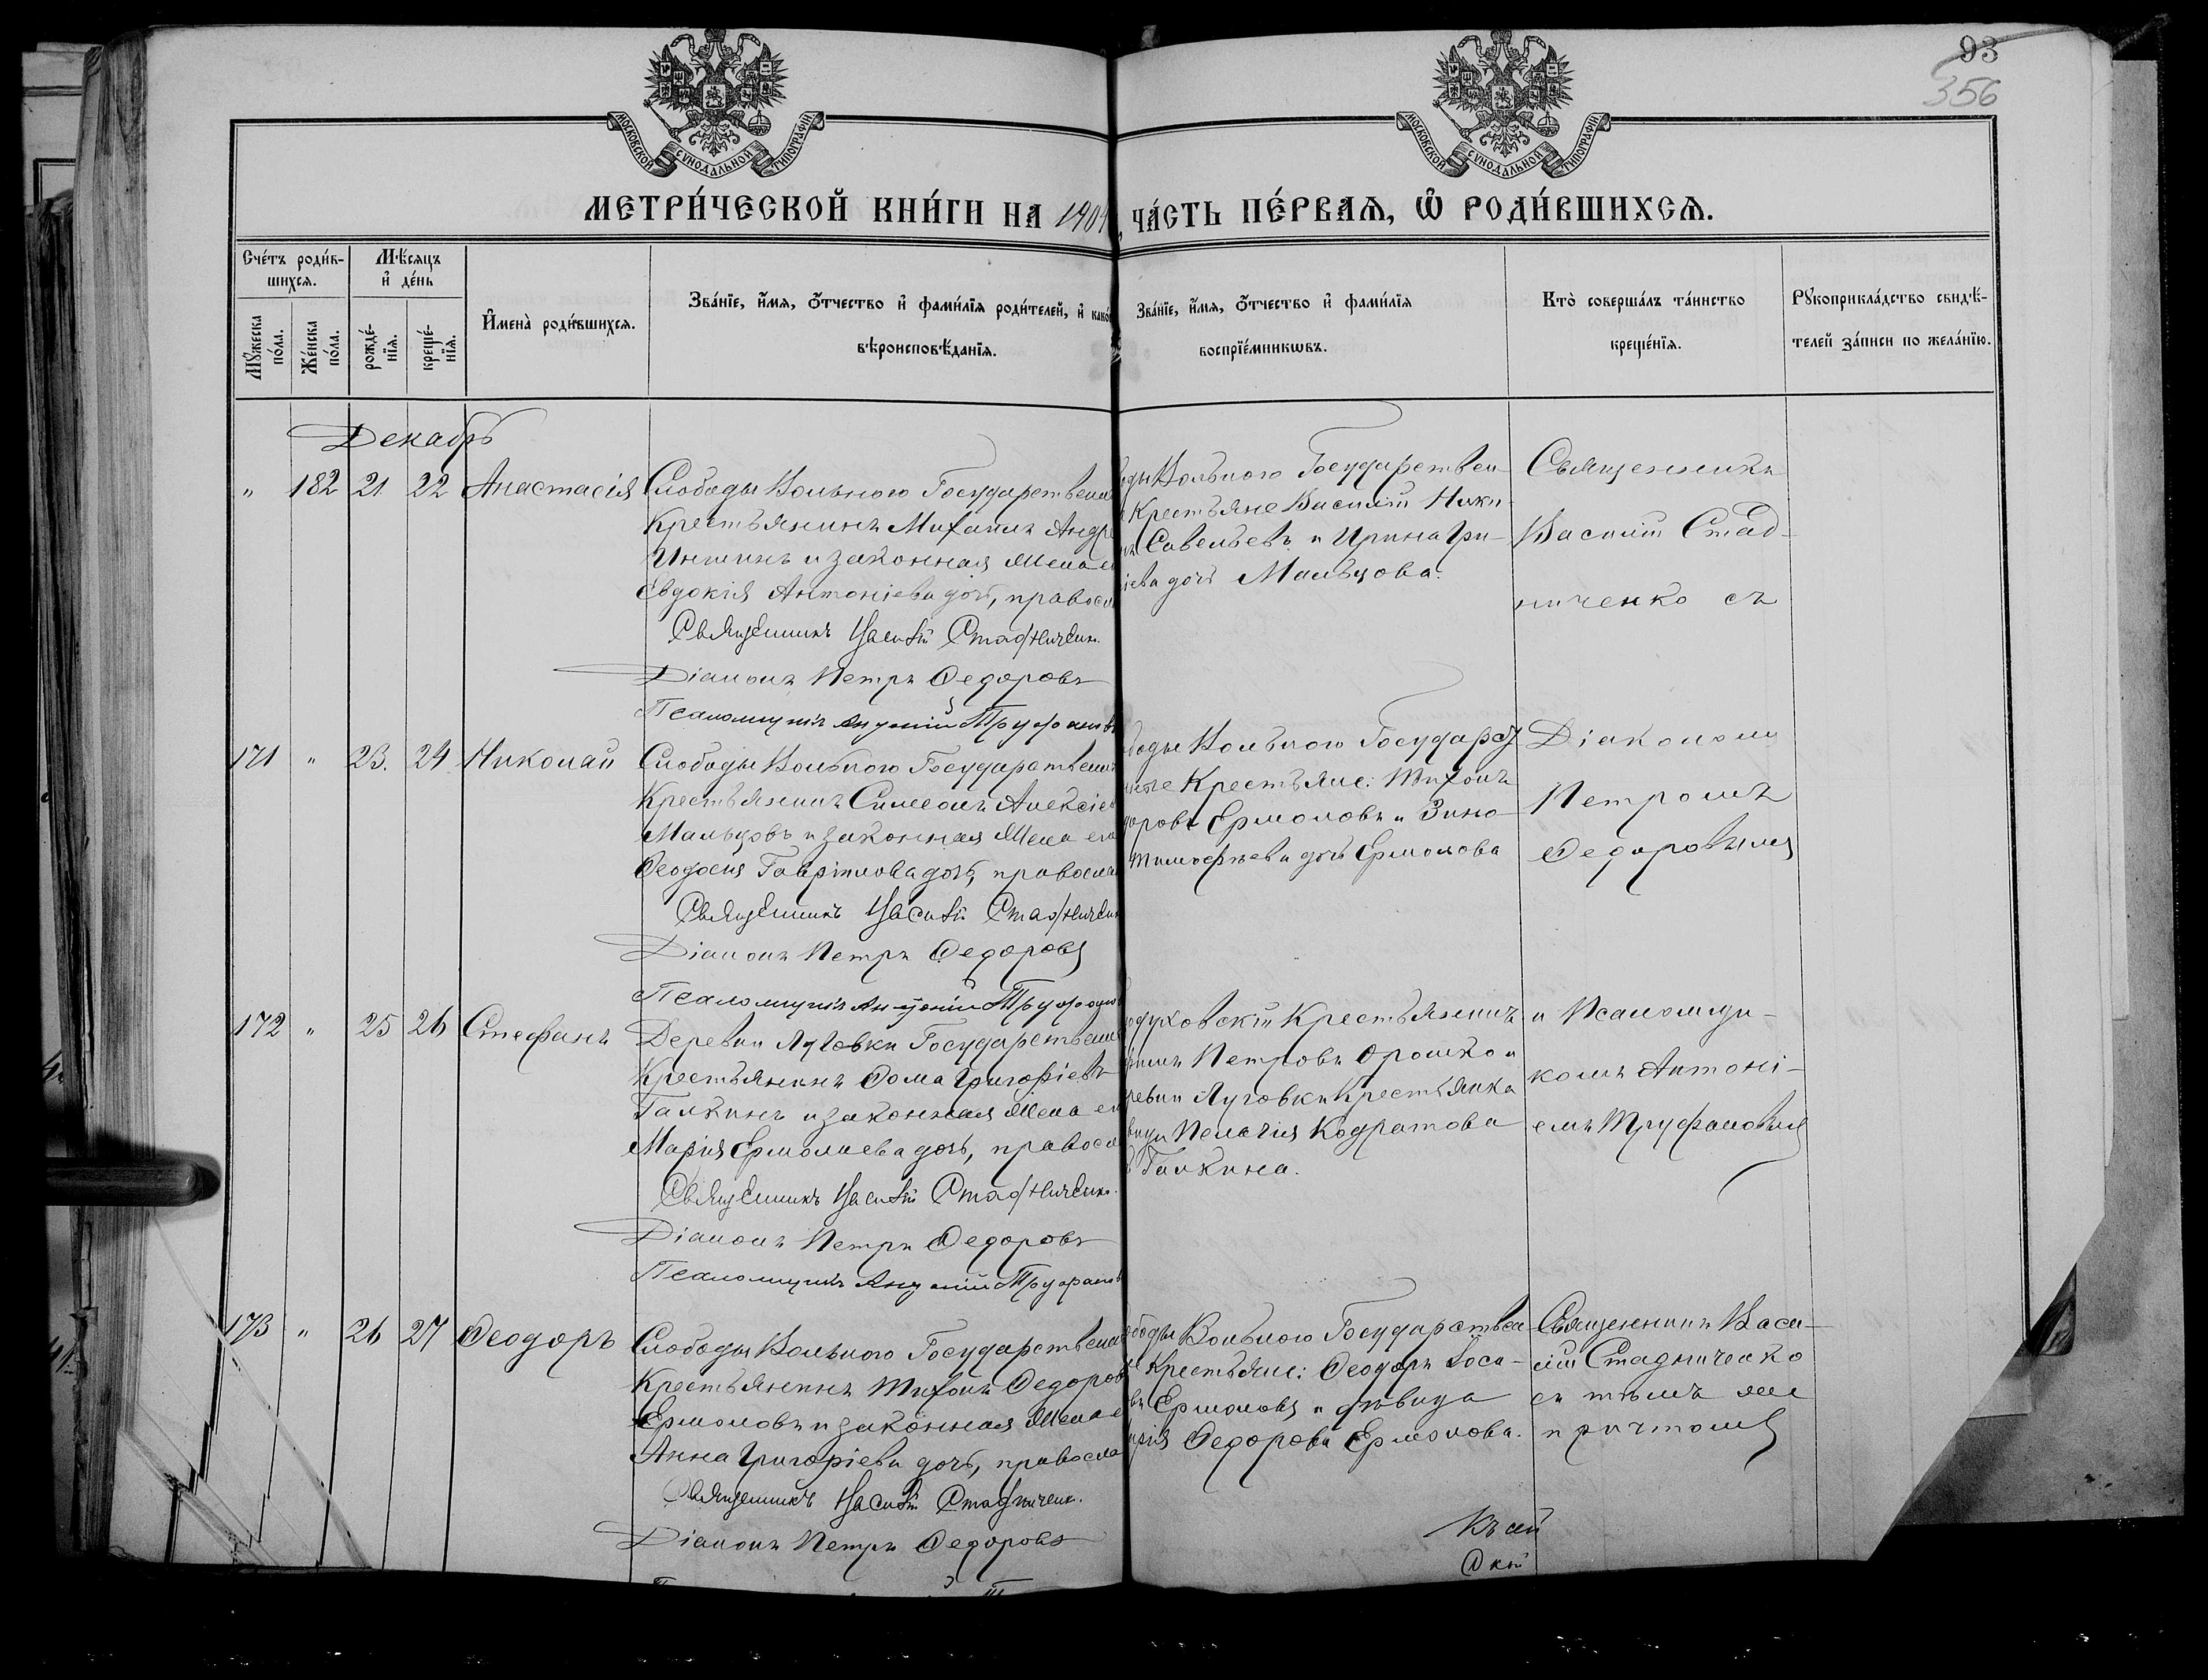 93
356
МОСКОВСКОЙ СѴНОДАЛЬНОЙ ТИПОГРАФІИ
МОСКОВСКОЙ СѴНОДАЛЬНОЙ ТИПОГРАФІИ
МЕТРИ́ЧЕСКОЙ КНИ́ГИ НА 1904, ЧА́СТЬ ПЕ́РВАѦ, Ѽ РОДИ́ВШИХСѦ.
Сче́тъ роди́в-
шихсѧ.
Мꙋ́жеска по́ла.
Же́нска по́ла.
Мѣ́сѧцъ
и҆ де́нь
рожде́-
нїѧ.
креще́-
нїѧ.
И҆мена̀ роди́вшихсѧ.
Зва́нїе, и҆́мѧ, ѻ҆́тчество и҆ фами́лїѧ роди́телей, и҆ како́
вѣроисповѣ́данїѧ.
Зва́нїе, и҆́мѧ, ѻ҆́тчество и҆ фами́лїѧ
воспрїе́мникѡвъ.
Кто̀ соверша́лъ та́инство
креще́нїѧ.
Рꙋкоприкла́дство свидѣ́-
телей за́писи по жела́нїю.
Декабрь
" 182 21 22 Анастасія
Слободы Вольного Государствен
Крестьянинъ Михаилъ Андре
и законная жена е
Евдокія Антоніева дочь, правосл
Священникъ Василій Стадниченко
Діаконъ Петръ Федоровъ
Псаломщикъ Антоній Труфановъ
оды Вольного Государствен-
Крестьяне Василій Ники-
Савельевъ и Ирина Гри-
іева дочь Мальцова.
Священникъ
Василій Стад-
ниченко съ
171 " 23. 24 Николай
Слободы Вольного Государствен
Крестьянинъ Симеонъ Алексіев
Мальцовъ и законная жена его
Феодосия Гавріилова дочь, правосла
Священникъ Василій Стадничен
Діаконъ Петръ Федоровъ
Псаломщикъ Антоній Труфанов
боды Вольного Государст
ные Крестьяне: Тихонъ
доровъ Ермоловъ и Зино-
Тимофѣева дочь Ермолова
Діакономъ
Петромъ
Федоровымъ
172 " 25 26 Стефанъ
Деревни Луговки Государствен
Крестьянинъ Фома Григоріевъ
Галкинъ и законная жена ег
Марія Ермолаева дочь, правосл
Священникъ Василій Стадниченко.
Діаконъ Петръ Федоровъ
Псаломщикъ Антоній Труфанов
одуховскій Крестьянинъ
Петровъ и
ревни Луговки Крестьянка
Пелагія Кодратова
Галкина.
и Псаломщи-
комъ Антоні-
емъ Труфановымъ
173 " 26 27 Феодоръ
Слободы Вольного Государствен
Крестьянинъ Тихонъ Федоров
Ермоловъ и законная жена е
Анна Григоріева дочь, правосла
Священникъ Василій Стадниченк.
Діаконъ Петръ Федоровъ
ободы Вольного Государствен-
Крестьяне: Феодоръ Іоси-
въ Ермоловъ и дѣвица
арія Федорова Ермолова.
Священникъ Васи-
лій Стадниченко
съ тѣмъ же
причтомъ
Къ сей